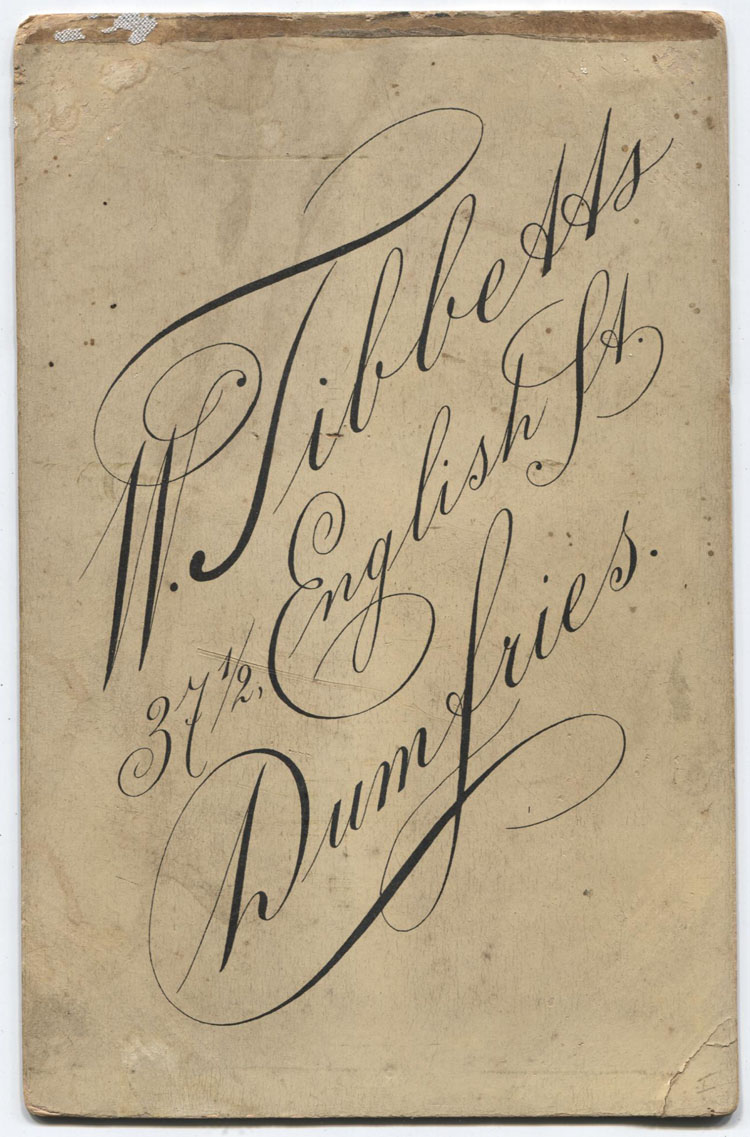 W. Tibbetts
37 1/2, English St.
Dumfries.